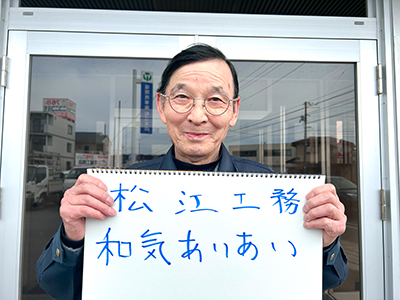 松江工務
和気あいあい